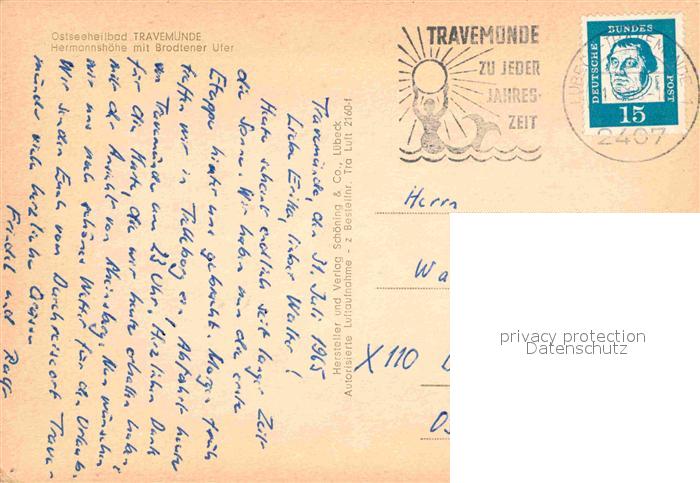 Ostseeheilbad TRAVEMÜNDE
Hermannshöhe mit Brodtener Ufer
Travemünde, den 31. Juli 1965
Liebe Erika, lieber Walter!
Heute scheint endlich seit langer Zeit
die Sonne. Wir haben nun die erste
Etappe hinter uns gebracht. Morgen früh
treffen wir in Trelleborg ein, Abfahrt heute
von Travemünde um 23 Uhr. Herzlichen Dank
für die Karte, die wir heute erhalten haben
mit der Ansicht von Rheinsberg. Nun wünschen
wir uns noch schönes Wetter für den Urlaub.
Wir senden Euch vom Durchreiseort Trave-
münde viele herzliche Grüsse
Friedel und Rolf
Hersteller und Verlag Schöning & Co., Lübeck
Autorisierte Luftaufnahme - z Bestellnr. Tra Luft 2160-f
TRAVEMÜNDE
ZU JEDER
JAHRES-
ZEIT
LÜBECK-TRAVEMÜNDE
2407
DEUTSCHE BUNDESPOST
15
Herrn
Wa
X110
privacy protection
Datenschutz